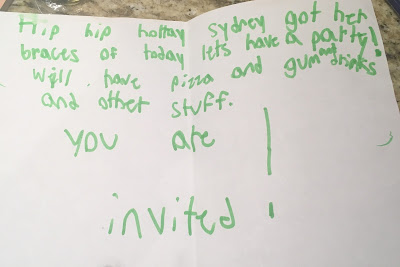 Hip hip horray Sydney got her
braces of today lets have a parte!
Will have pizza and gum and drinks
and other stuff.
you are !
invited!